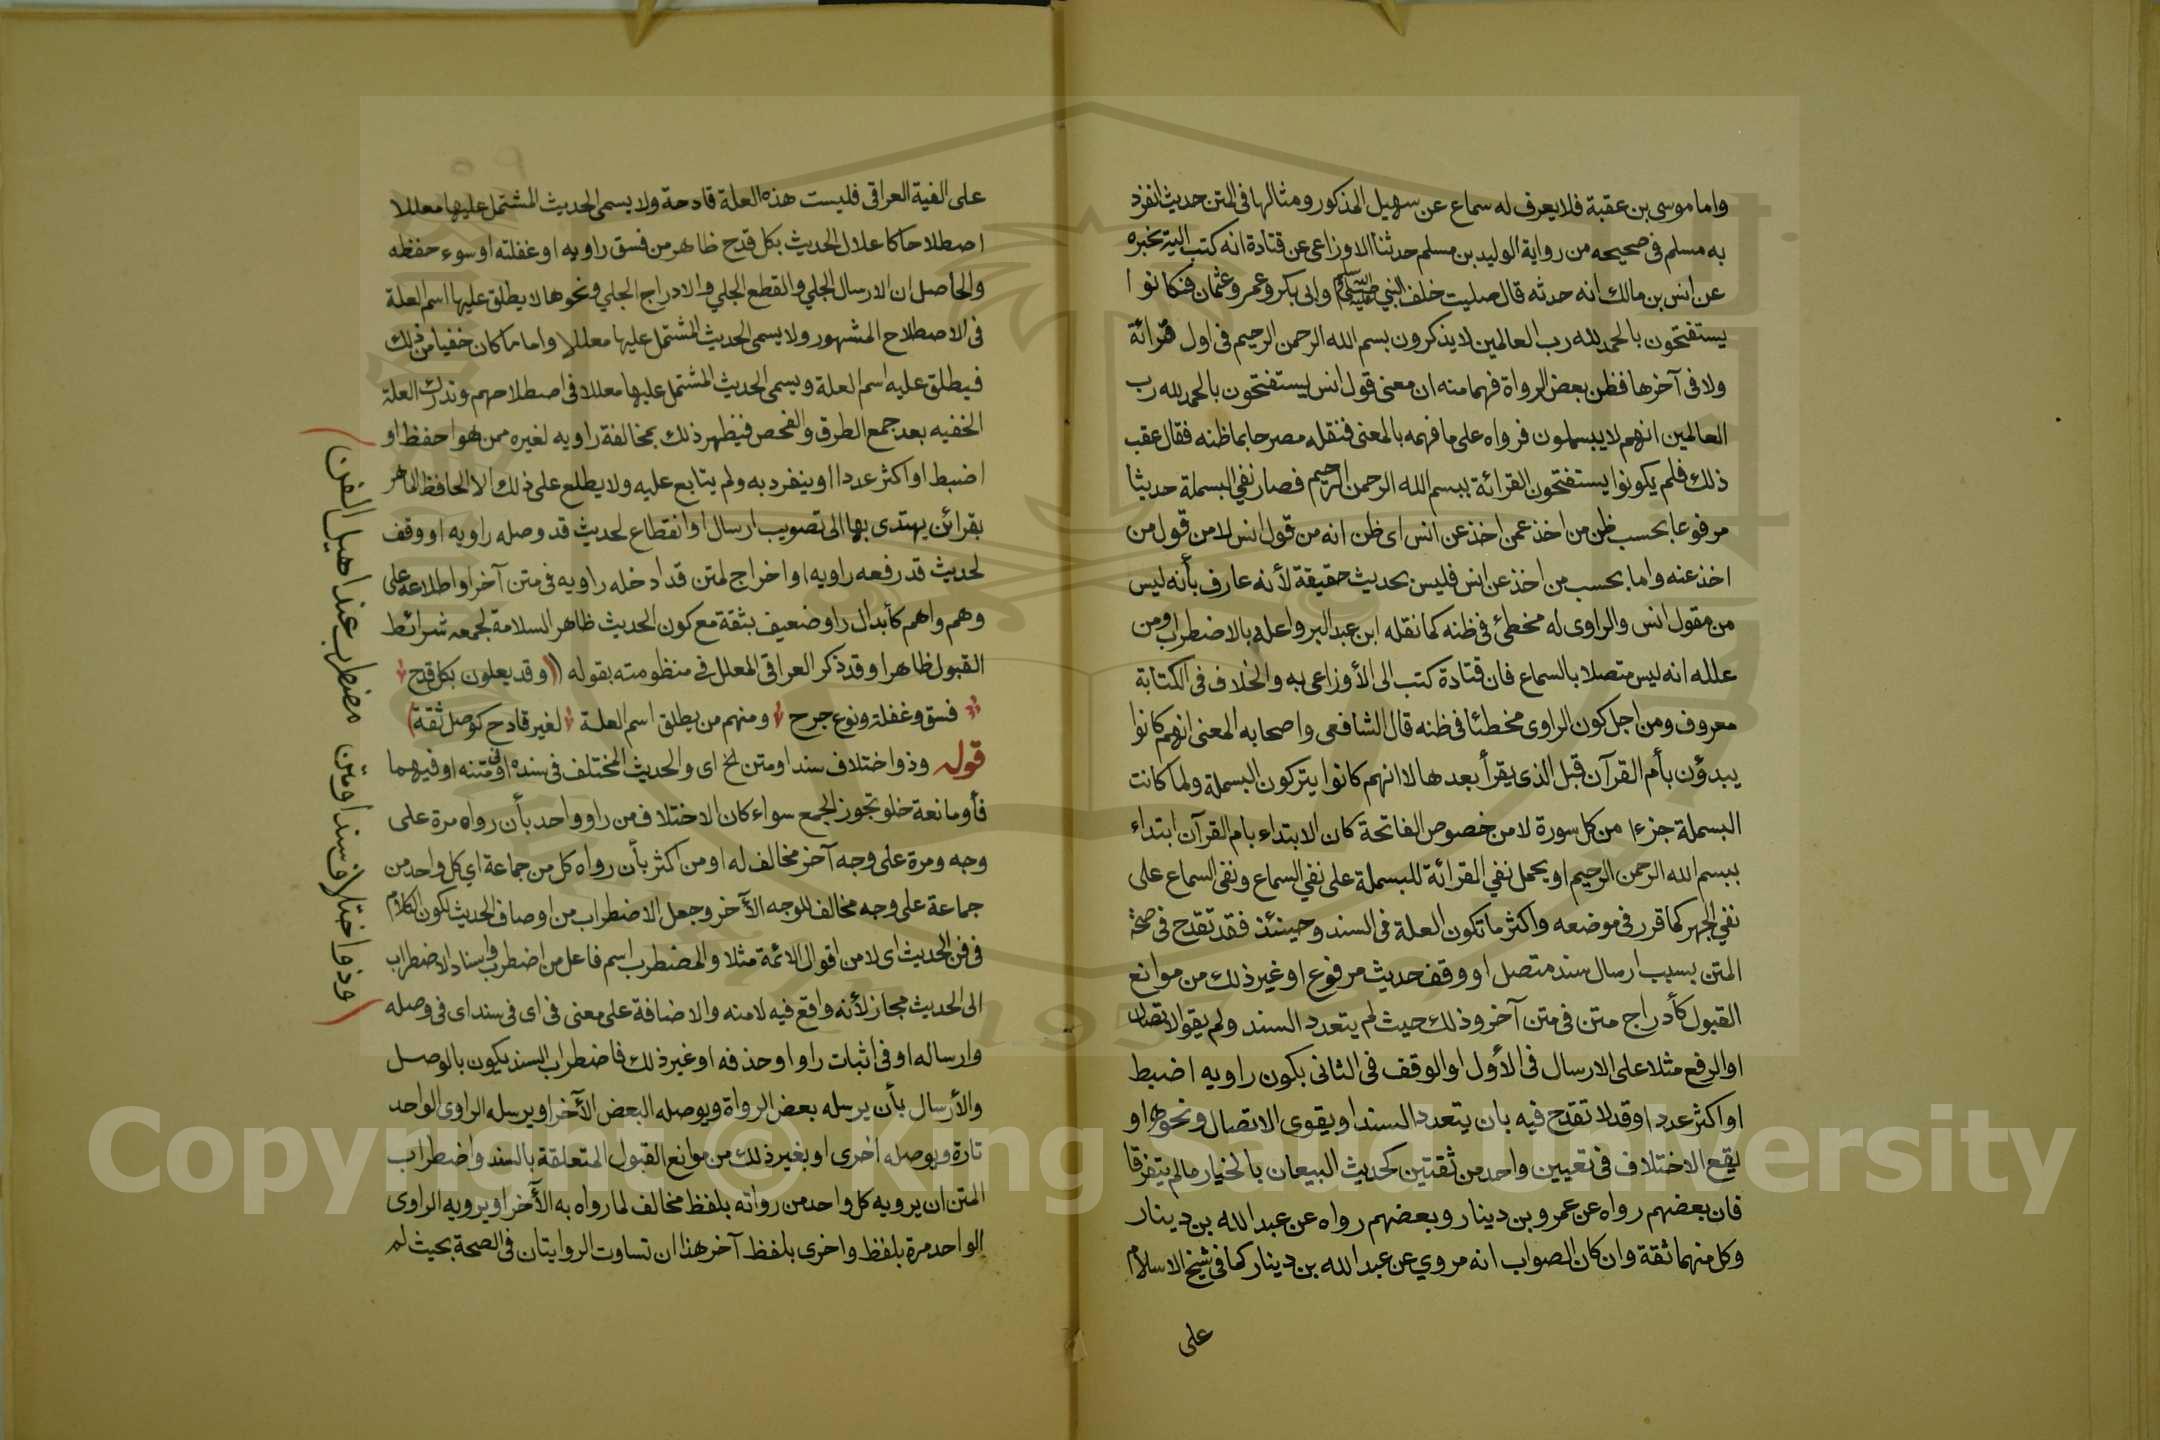 واما موسى بن عقبة فلا يعرف له سماع عن سهيل المذكور ومثالها فى المتن حديث انفرد
به مسلم فى صحيحه من رواية الوليد بن مسلم حدثنا الاوزاعى عن قتادة انه كتب اليه يخبره
عن انس بن مالك انه حدثه قال صليت خلف النبي صلى الله عليه وسلم وابى بكر وعمر وعثمان فكانوا
يستفتحون بالحمد لله رب العالمين لا يذكرون بسم الله الرحمن الرحيم فى اول قرائة
ولا فى آخرها فظن بعض الرواة فهما منه ان معنى قول انس يستفتحون بالحمد لله رب
العالمين انهم لا يبسملون فرواه على ما فهمه بالمعنى فنقله مصرحا بما ظنه فقال عقب
ذلك فلم يكونوا يستفتحون القرائة ببسم الله الرحمن الرحيم فصار نفي البسملة حديثا
مرفوعا بحسب ظن من اخذ عمن اخذ عن انس اى ظن انه من قول انس لا من قول من
اخذ عنه واما بحسب من اخذ عن انس فليس بحديث حقيقة لأنه عارف بأنه ليس
من مقول انس والراوى له مخطئ فى ظنه كما نقله ابن عبد البر واعله بالاضطراب ومن
علله انه ليس متصلا بالسماع فان قتادة كتب الى الأوزاعى به والخلاف فى الكتابة
معروف ومن اجل كون الراوى مخطئا فى ظنه قال الشافعى واصحابه المعنى انهم كانوا
يبدؤن بأم القرآن قبل الذى يقرأ بعدها لا انهم كانوا يتركون البسملة ولما كانت
البسملة جزءا من كل سورة لا من خصوص الفاتحة كان الابتداء بام القرآن ابتداء
ببسم الله الرحمن الرحيم او يحمل نفي القرائة للبسملة على نفي السماع ونفى السماع على
نفي الجهر كما قرر فى موضعه واكثر ما تكون العلة فى السند وحينئذ فقد تقدح فى صحة
المتن بسبب ارسال سند متصل او وقف حديث مرفوع او غير ذلك من موانع
القبول كأدراج متن فى متن آخر وذلك حيث لم يتعدد السند ولم يقو الاتصال
او الرفع مثلا على الارسال فى الأول او الوقف فى الثانى بكون راويه اضبط
او اكثر عددا وقد لا تقدح فيه بان يتعدد السند او يقوى الاتصال ونحوه او
يقع الاختلاف فى تعيين واحد من ثقتين كحديث البيعان بالخيار ما لم يتفرقا
فان بعضهم رواه عن عمرو بن دينار وبعضهم رواه عن عبد الله بن دينار
وكل منهما ثقة وان كان الصواب انه مروي عن عبد الله بن دينار كما فى شيخ الاسلام
على
على الفية العراقى فليست هذه العلة قادحة ولا يسمى الحديث المشتمل عليها معللا
اصطلاحا كاعلال الحديث بكل قدح ظاهر من فسق راويه او غفلته او سوء حفظه
والحاصل ان الارسال الجلي والقطع الجلي والادراج الجلي ونحوها لا يطلق عليها اسم العلة
فى الاصطلاح المشهور ولا يسمى الحديث المشتمل عليها معللا واما ما كان خفيا من ذلك
فيطلق عليه اسم العلة ويسمى الحديث المشتمل عليها معللا فى اصطلاحهم وتدرك العلة
الخفيه بعد جمع الطرق والفحص فيظهر ذلك بمخالفة راويه لغيره ممن هو احفظ او
اضبط او اكثر عددا او ينفرد به ولم يتابع عليه ولا يطلع على ذلك الا الحافظ الماهر
بقرائن يهتدى بها الى تصويب ارسال او انقطاع لحديث قد وصله راويه او وقف
لحديث قد رفعه راويه او اخراج لمتن قد ادخله راويه فى متن آخر او اطلاعه على
وهم واهم كأبدال راو ضعيف بثقة مع كون الحديث ظاهر السلامة لجمعه شرائط
القبول ظاهرا وقد ذكر العراقى المعلل في منظومته بقوله ((وقد يعلون بكل قدح
فسق وغفلة ونوع جرح ومنهم من يطلق اسم العلة لغير قادح كوصل ثقة)
قوله وذو اختلاف سند او متن لخ اى والحديث المختلف فى سنده او فى متنه او فيهما
فأو مانعة خلو تجوز الجمع سواء كان الاختلاف من راو واحد بأن رواه مرة على
وجه ومرة على وجه آخر مخالف له او من اكثر بأن رواه كل من جماعة اي كل واحد من
جماعة على وجه مخالف للوجه الآخر وجعل الاضطراب من اوصاف الحديث لكون الكلام
فى فن الحديث اى لا من اقوال الائمة مثلا والمضطرب اسم فاعل من اضطرب واسناد الاضطراب
الى الحديث مجاز لأنه واقع فيه لا منه والاضافة على معنى فى اى فى سند اى فى وصله
وارساله او فى اثبات راو او حذفه او غير ذلك فاضطراب السند يكون بالوصل
والأرسال بأن يرسله بعض الرواة ويوصله البعض الآخر او يرسله الراوى الواحد
تارة ويوصله اخرى او بغير ذلك من موانع القبول المتعلقة بالسند واضطراب
المتن ان يرويه كل واحد من رواته بلفظ مخالف لما رواه به الآخر او يرويه الراوى
الواحد مرة بلفظ واخرى بلفظ آخر هذا ان تساوت الروايتان فى الصحة بحيث لم
وذو اختلاف سند او متن مضطرب عند اهيل الفن
Copyright © King Saud University